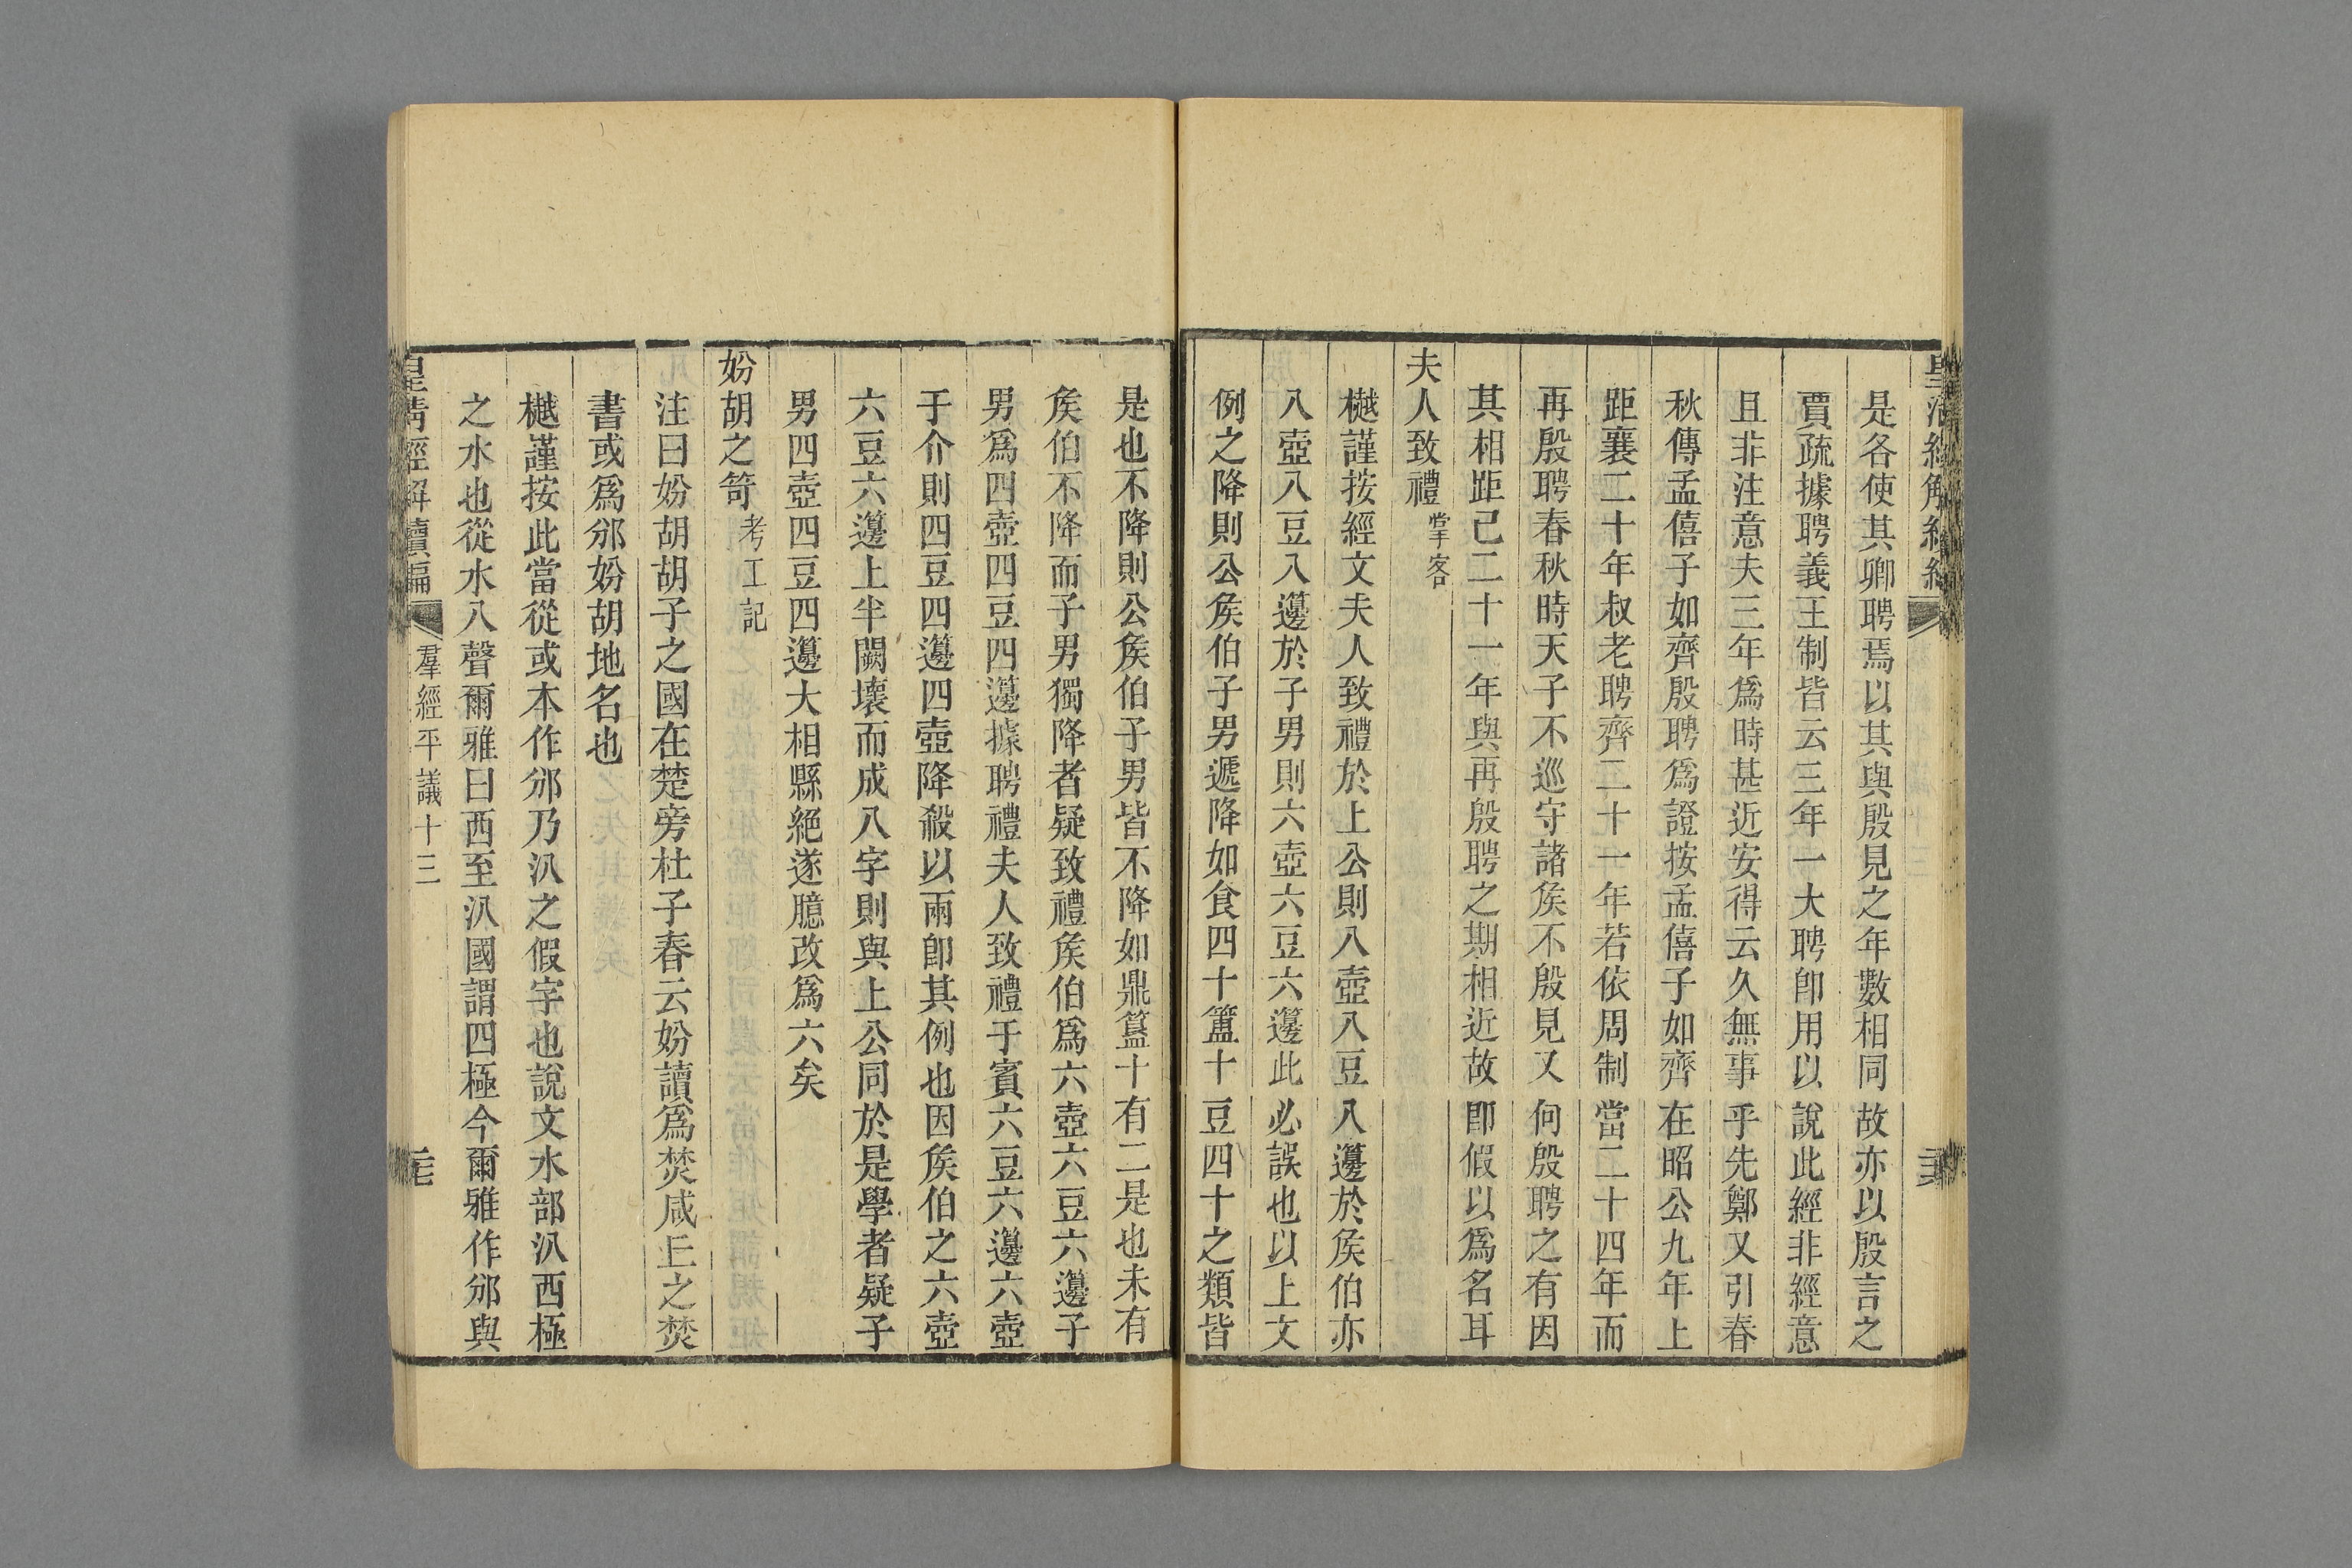 是各使其卿聘焉以其與殷見之年數相同故亦以殷言之
賈疏據聘義王制皆云三年一大聘卽用以說此經非經意
且非注意夫三年爲時甚近安得云久無事乎先鄭又引春
秋傳孟僖子如齊殷聘爲證按孟僖子如齊在昭公九年上
距襄二十年叔老聘齊二十一年若依周制當二十四年而
再殷聘春秋時天子不巡守諸矦不殷見又何殷聘之有因
其相距已二十一年與再殷聘之期相近故卽假以爲名耳
夫人致禮掌客
樾謹按經文夫人致禮於上公則八壺八豆八籩於矦伯亦
八壺八豆八籩於子男則六壺六豆六籩此必誤也以上文
例之降則公矦伯子男遞降如食四十簠十豆四十之類皆
是也不降則公矦伯子男皆不降如鼎簋十有二是也未有
矦伯不降而子男獨降者疑致禮矦伯爲六壺六豆六籩子
男爲四壺四豆四籩據聘禮夫人致禮于賓六豆六籩六壺
于介則四豆四籩四壺降殺以兩卽其例也因矦伯之六壺
六豆六籩上半闕壞而成八字則與上公同於是學者疑子
男四壺四豆四籩大相縣絕遂臆改爲六矣
妢胡之笴考工記
注曰妢胡胡子之國在楚旁杜子春云妢讀爲焚咸丘之焚
書或爲邠妢胡地名也
樾謹按此當從或本作邠乃汃之假字也說文水部汃西極
之水也從水八聲爾雅曰西至汃國謂四極今爾雅作邠與
皇清經解續編 羣經平議十三